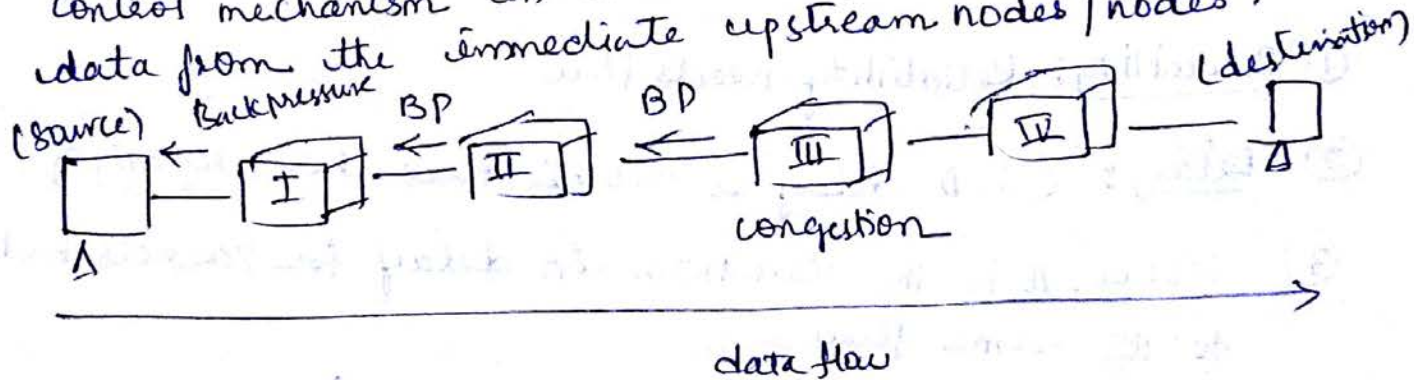 control mechanism
data from the immediate upstream nodes / nodes.
(source) Backpressure BP BP (destination)
I II III IV
congestion
data flow